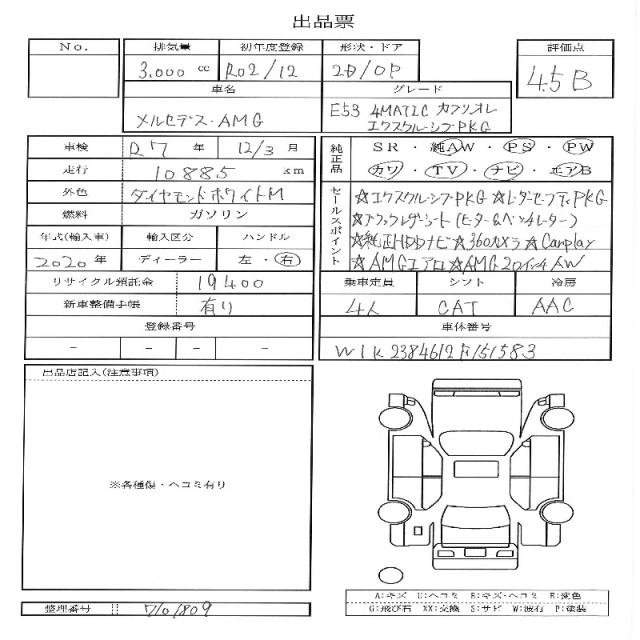 出品票
No. 排気量 初年度登録 形状・ドア 評価点
3.000 cc R02/12 2D/OP 4.5 B
車名 グレード
メルセデス・AMG E53 4MATIC カブリオレ
エクスクルーシブPKG
車検 R7 年 12/3 月
走行 10885 km
外色 ダイヤモンドホワイトM
燃料 ガソリン
年式(輸入車) 輸入区分 ハンドル
2020年 ディーラー 左・右
リサイクル預託金 19400
新車整備手帳 有り
登録番号
－ － － －
純正品 SR・純AW・PS・PW
カワ・TV・ナビ・エアB
セールスポイント
☆エクスクルーシブPKG ☆レーダーセーフティPKG
☆ブラックレザーシート(ヒーター&ベンチレーター)
☆純正HDDナビ☆360カメラ☆Carplay
☆AMGエアロ☆AMG20インチAW
乗車定員 シフト 冷房
4人 CAT AAC
車体番号
W1K2384612F151583
出品店記入(注意事項)
※各種傷・ヘコミ有り
A:キズ U:ヘコミ B:キズ・ヘコミ R:変色
G:飛び石 XX:交換 S:サビ W:波打 P:塗装
整理番号 7101809